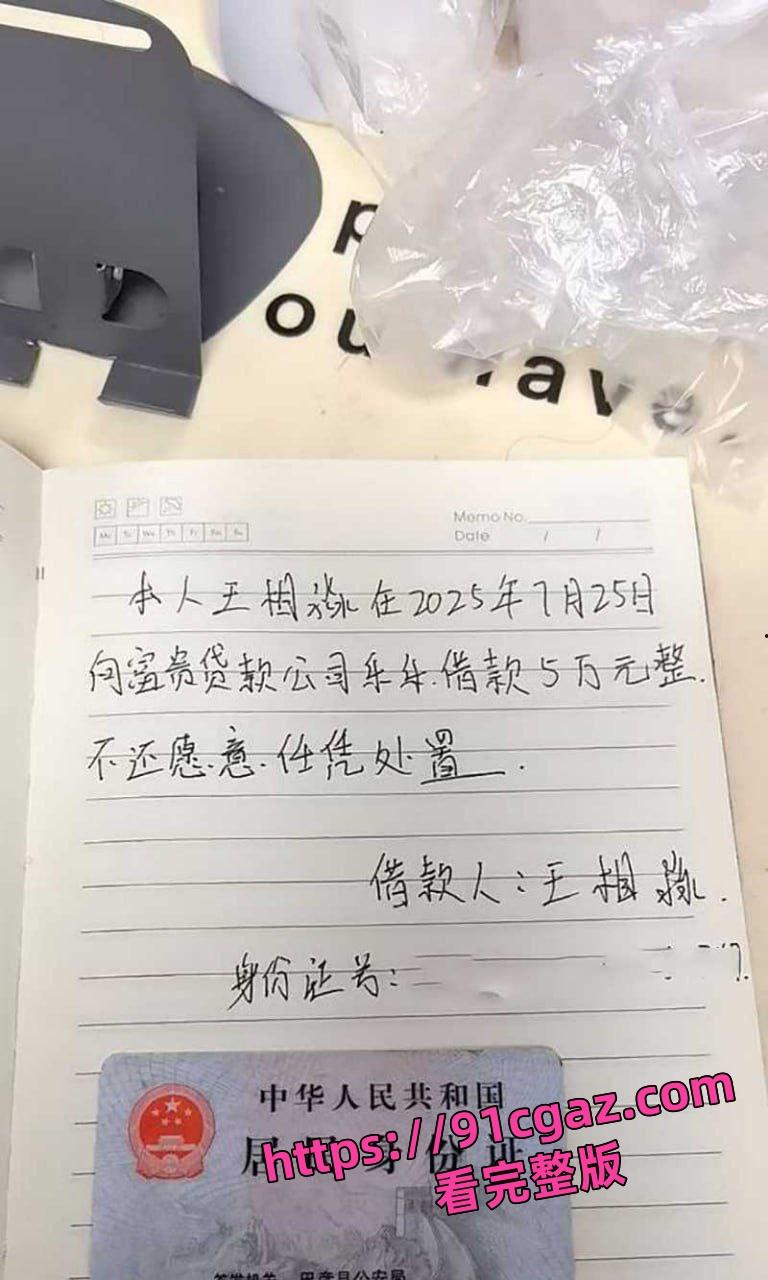 ou
ave.
Memo No.
Mo Tu We Th Fr Sa Su
Date / /
本人王相淼在2025年7月25日
向富贵贷款公司乐乐.借款5万元整.
不还愿意.任凭处置.
借款人:王相淼.
身份证号:
中华人民共和国
居民身份证
https://91cgaz.com
看完整版